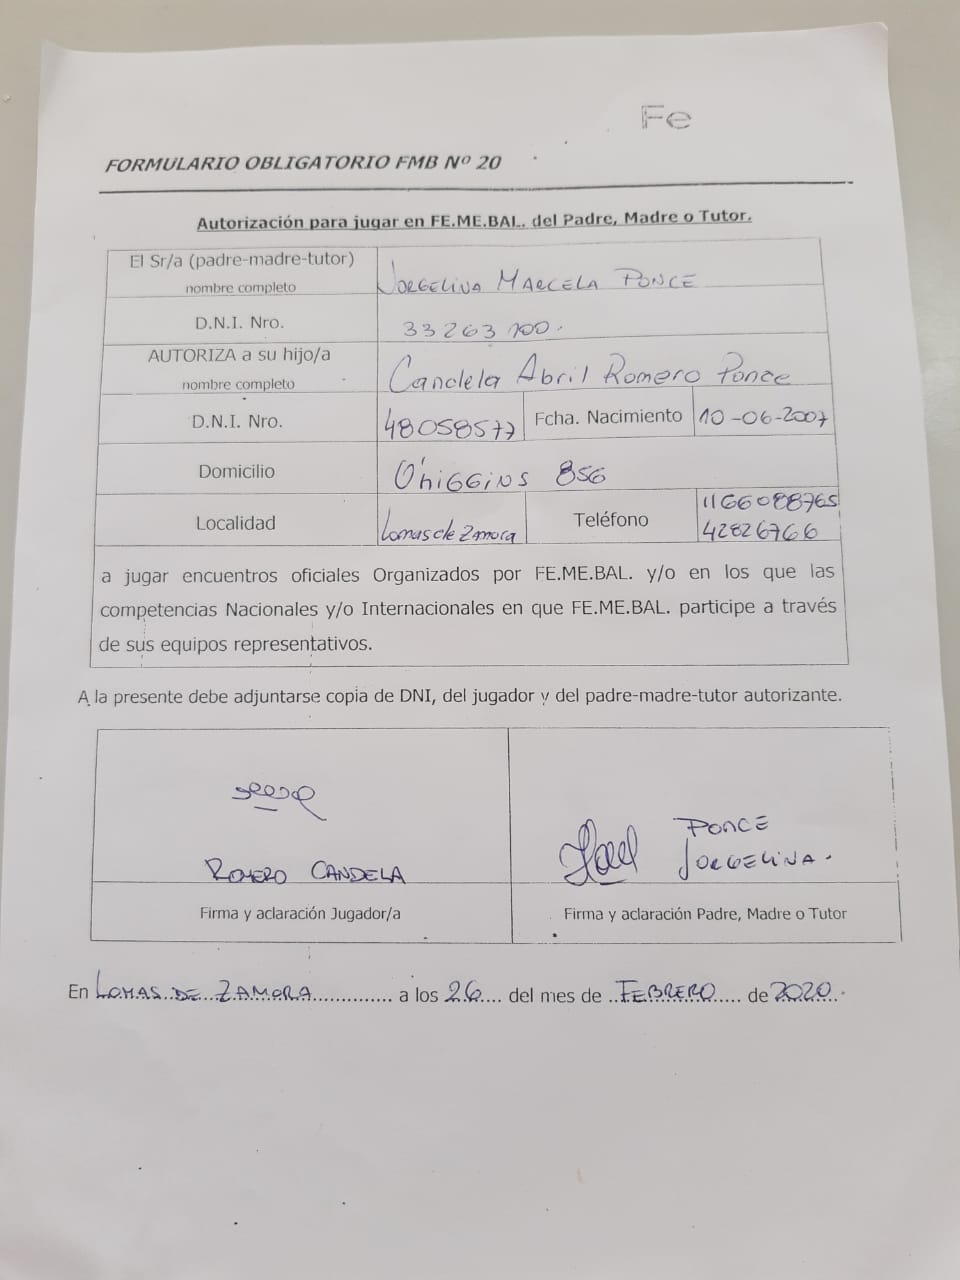 Fe
FORMULARIO OBLIGATORIO FMB Nº 20
Autorización para jugar en FE.ME.BAL. del Padre, Madre o Tutor.
El Sr/a (padre-madre-tutor)
nombre completo
JORGELINA MARCELA PONCE
D.N.I. Nro.
33263100.
AUTORIZA a su hijo/a
nombre completo
Candela Abril Romero Ponce
D.N.I. Nro.
48058577
Fcha. Nacimiento
10-06-2007
Domicilio
O'hiGGiNS 856
Localidad
Lomas de Zamora
Teléfono
1166088765
42826766
a jugar encuentros oficiales Organizados por FE.ME.BAL. y/o en los que las
competencias Nacionales y/o Internacionales en que FE.ME.BAL. participe a través
de sus equipos representativos.
A la presente debe adjuntarse copia de DNI, del jugador y del padre-madre-tutor autorizante.
ROMERO CANDELA
PONCE
JORGELINA.
Firma y aclaración Jugador/a
Firma y aclaración Padre, Madre o Tutor
En LOMAS DE ZAMORA............. a los 26.... del mes de ..FEBRERO..... de 2020.